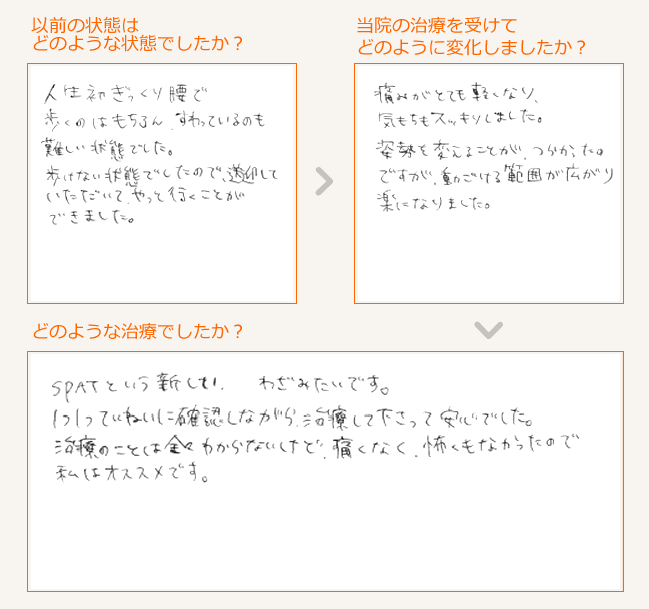 以前の状態は
どのような状態でしたか？
人生初ぎっくり腰で
歩くのはもちろん、すわっているのも
難しい状態でした。
歩けない状態でしたので、送迎して
いただいて、やっと行くことが
できました。
当院の治療を受けて
どのように変化しましたか？
痛みがとても軽くなり、
気もちもスッキリしました。
姿勢を変えることが、つらかったの
ですが、動ごける範囲が広がり
楽になりました。
どのような治療でしたか？
SPATという新しい、 わざみたいです。
1つ1つていねいに確認しながら、治療して下さって安心でした。
治療のことは全々わからないけど、痛くなく、怖くもなかったので
私はオススメです。